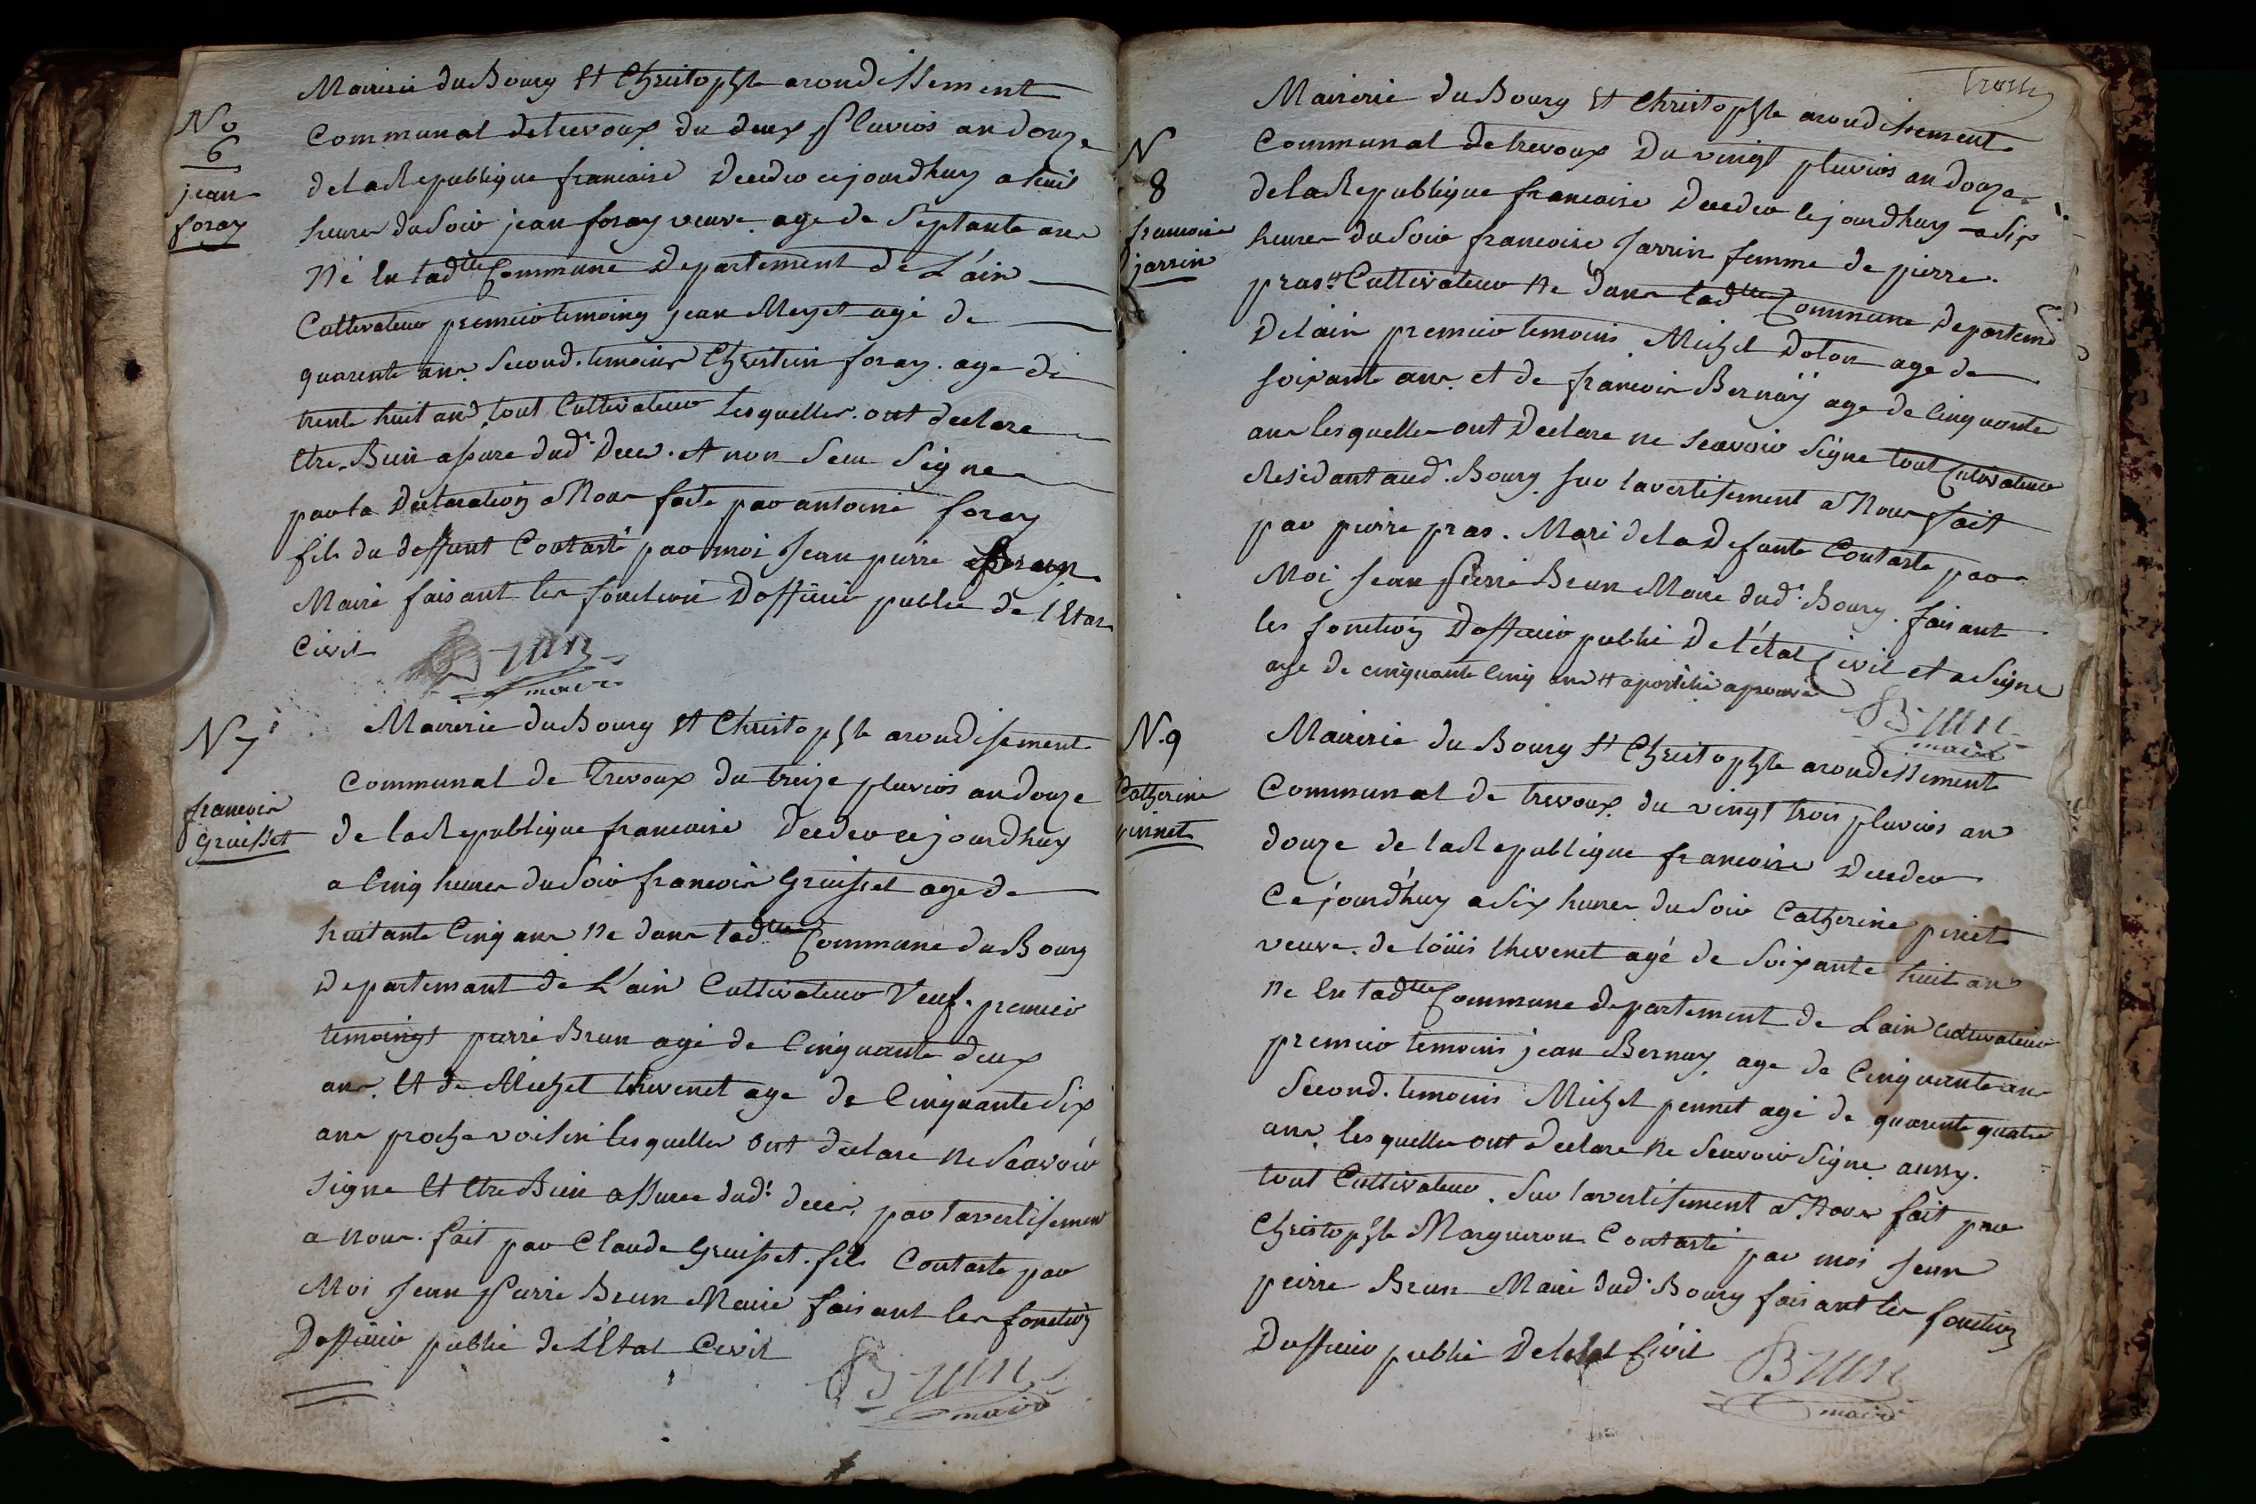 No
6
jean
foray
Mairerie du Bourg St Christophle arondissement
Communal de trevoux du deux pluvios an douze
de la Republique francaise Decedeo cejourdhuy a huit
heures du Soir jean foray veuve age de Septante ans
Né en ladtte Commune Departement de L'ain
Cultivateur premier temoing jean Meyet agé de
quarente ans Second temoins Christin foray age de
trente huit ans tout Cultivateur Lesquelles ont declare
Etre Bien assure dudt Deces et non Seu Signe
par la Declaration a Nous faite par antoine foray
fils du deffunt Contasté par moi Jean pierre Brun
Maire faisant les fonction Dofficier public de l'Etat
Civil
Brun
maire
N 7
francois
Gruisset
Mairerie du Bourg St Christophle arondisement
Communal de Trevoux du treize pluvios an douze
de la Republique francaise Decedeo cejourdhuy
a Cinq heures du Soir francois Gruisset age de
huitante Cinq ans Ne dans ladtte Commune du Bourg
Departemant de L'ain Cultivateur Veuf premier
temoingt pierre Brun agé de Cinquante deux
ans Et de Michel thevenet age de Cinquante Six
ans proche voisin lesquelles ont declare Ne Scavoir
Signe Et Etre Bien assuree dudt deces par lavertisement
a nous fait par Claude Gruisset fils Contasté par
Moi Jean Pierre Brun Maire faisant les fonction
Dofficier publié de L'Etat Civil
Brun
maire
N
8
francoise
jarrin
Mairerie du Bourg St Christophle arondisement
Communal De trevoux Du vingt pluvios an Douze
de la Republique francaise Decedeo cejourdhuy a Six
heures du Soir francoise Jarrin femme de pierre
pras Cultivateur Ne dans ladtte Commune Departemt
De lain premier temoins Michel Dolon age de
soixante ans et de francois Bernay age de Cinquante
ans lesquelles ont Declare ne Scavoir Signe tout Cultivateur
Residant audt Bourg sur lavertisement a Nous fait
par pierre pras Mari de la Defante Contaste par
Moi Jean Pierre Brun Maire dudt Bourg faisant
les fonction Dofficier publié De l'état Civil et a Signe
age de cinquante Cinq ans
Brun
maire
N. 9
Catherine
pinnet
Mairerie du Bourg St Christophle arondissement
Communal de trevoux du vingt trois pluvios an
douze de la Republique francoise Decedeo
Cejourd'huy a Six heures du Soir Catherine pinet
veuve de loüis thevenet agé de Soixante huit ans
Ne En ladtte Commune departement de Lain Cultivateur
premier temoins jean Bernay age de Cinquante ans
Second temoins Michel pennet agé de quarente quatre
ans lesquelles ont declare Ne Scavoir Signe aussy
tout Cultivateur Sur lavertisement a Nous fait par
Christophle Margueron Contasté par moi Jean
pierre Brun Maire dudt Bourg faisant les fonction
Dofficier publié De letat Civil
Brun
maire